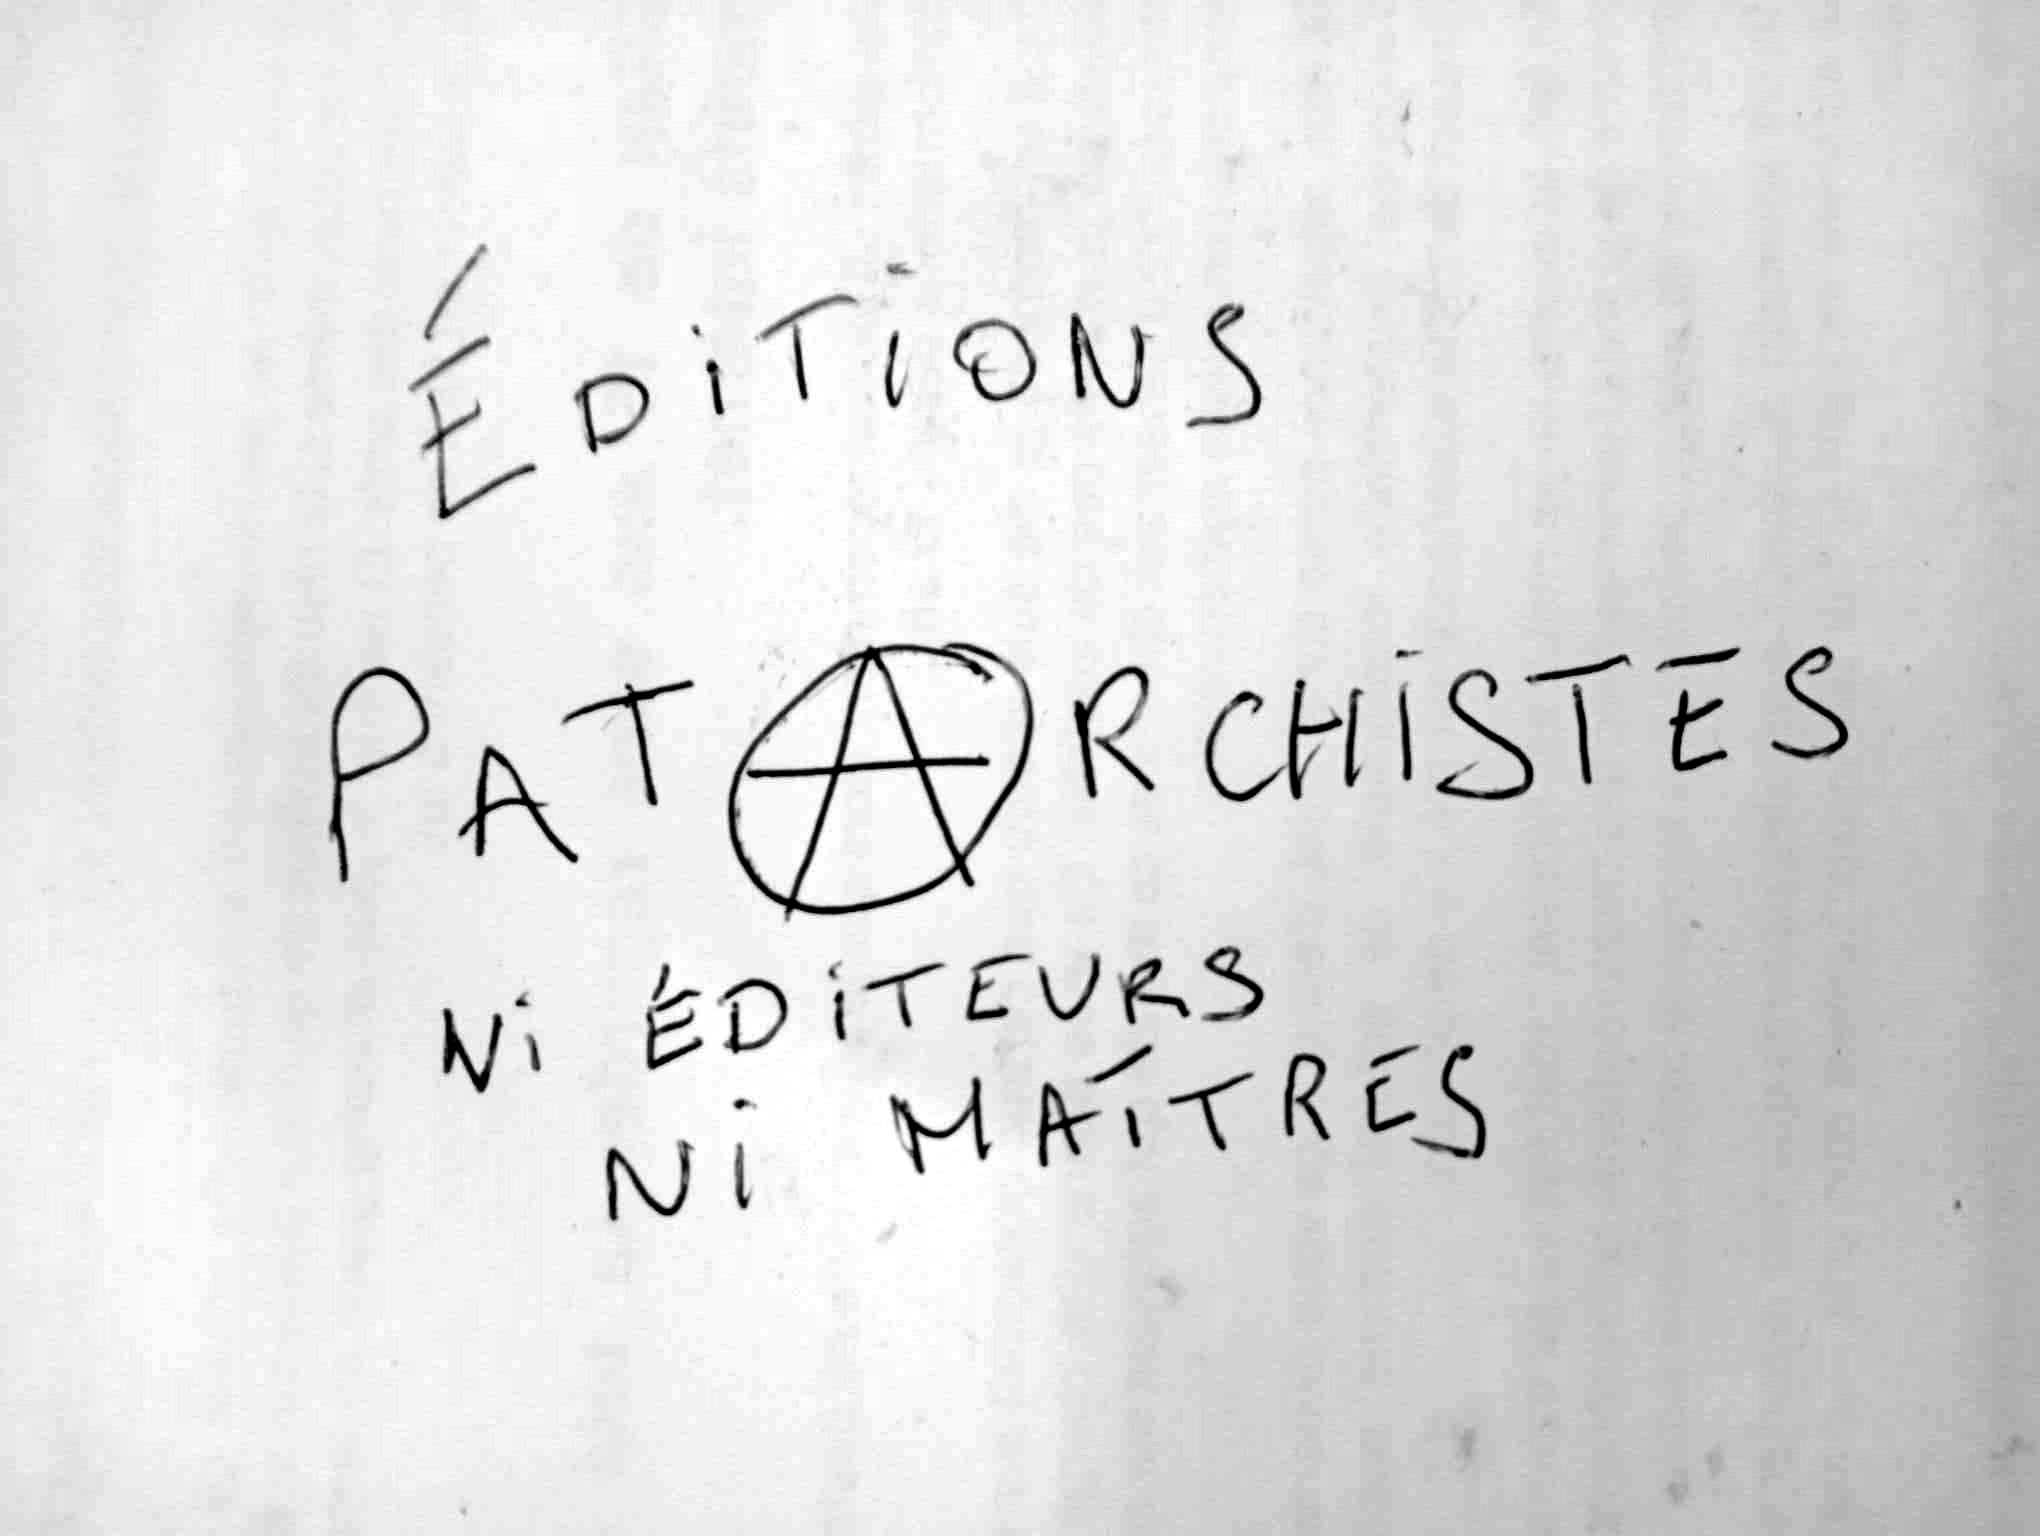 ÉDiTiONS
PATⒶRCHiSTES
Ni ÉDiTEURS
Ni MAÎTRES